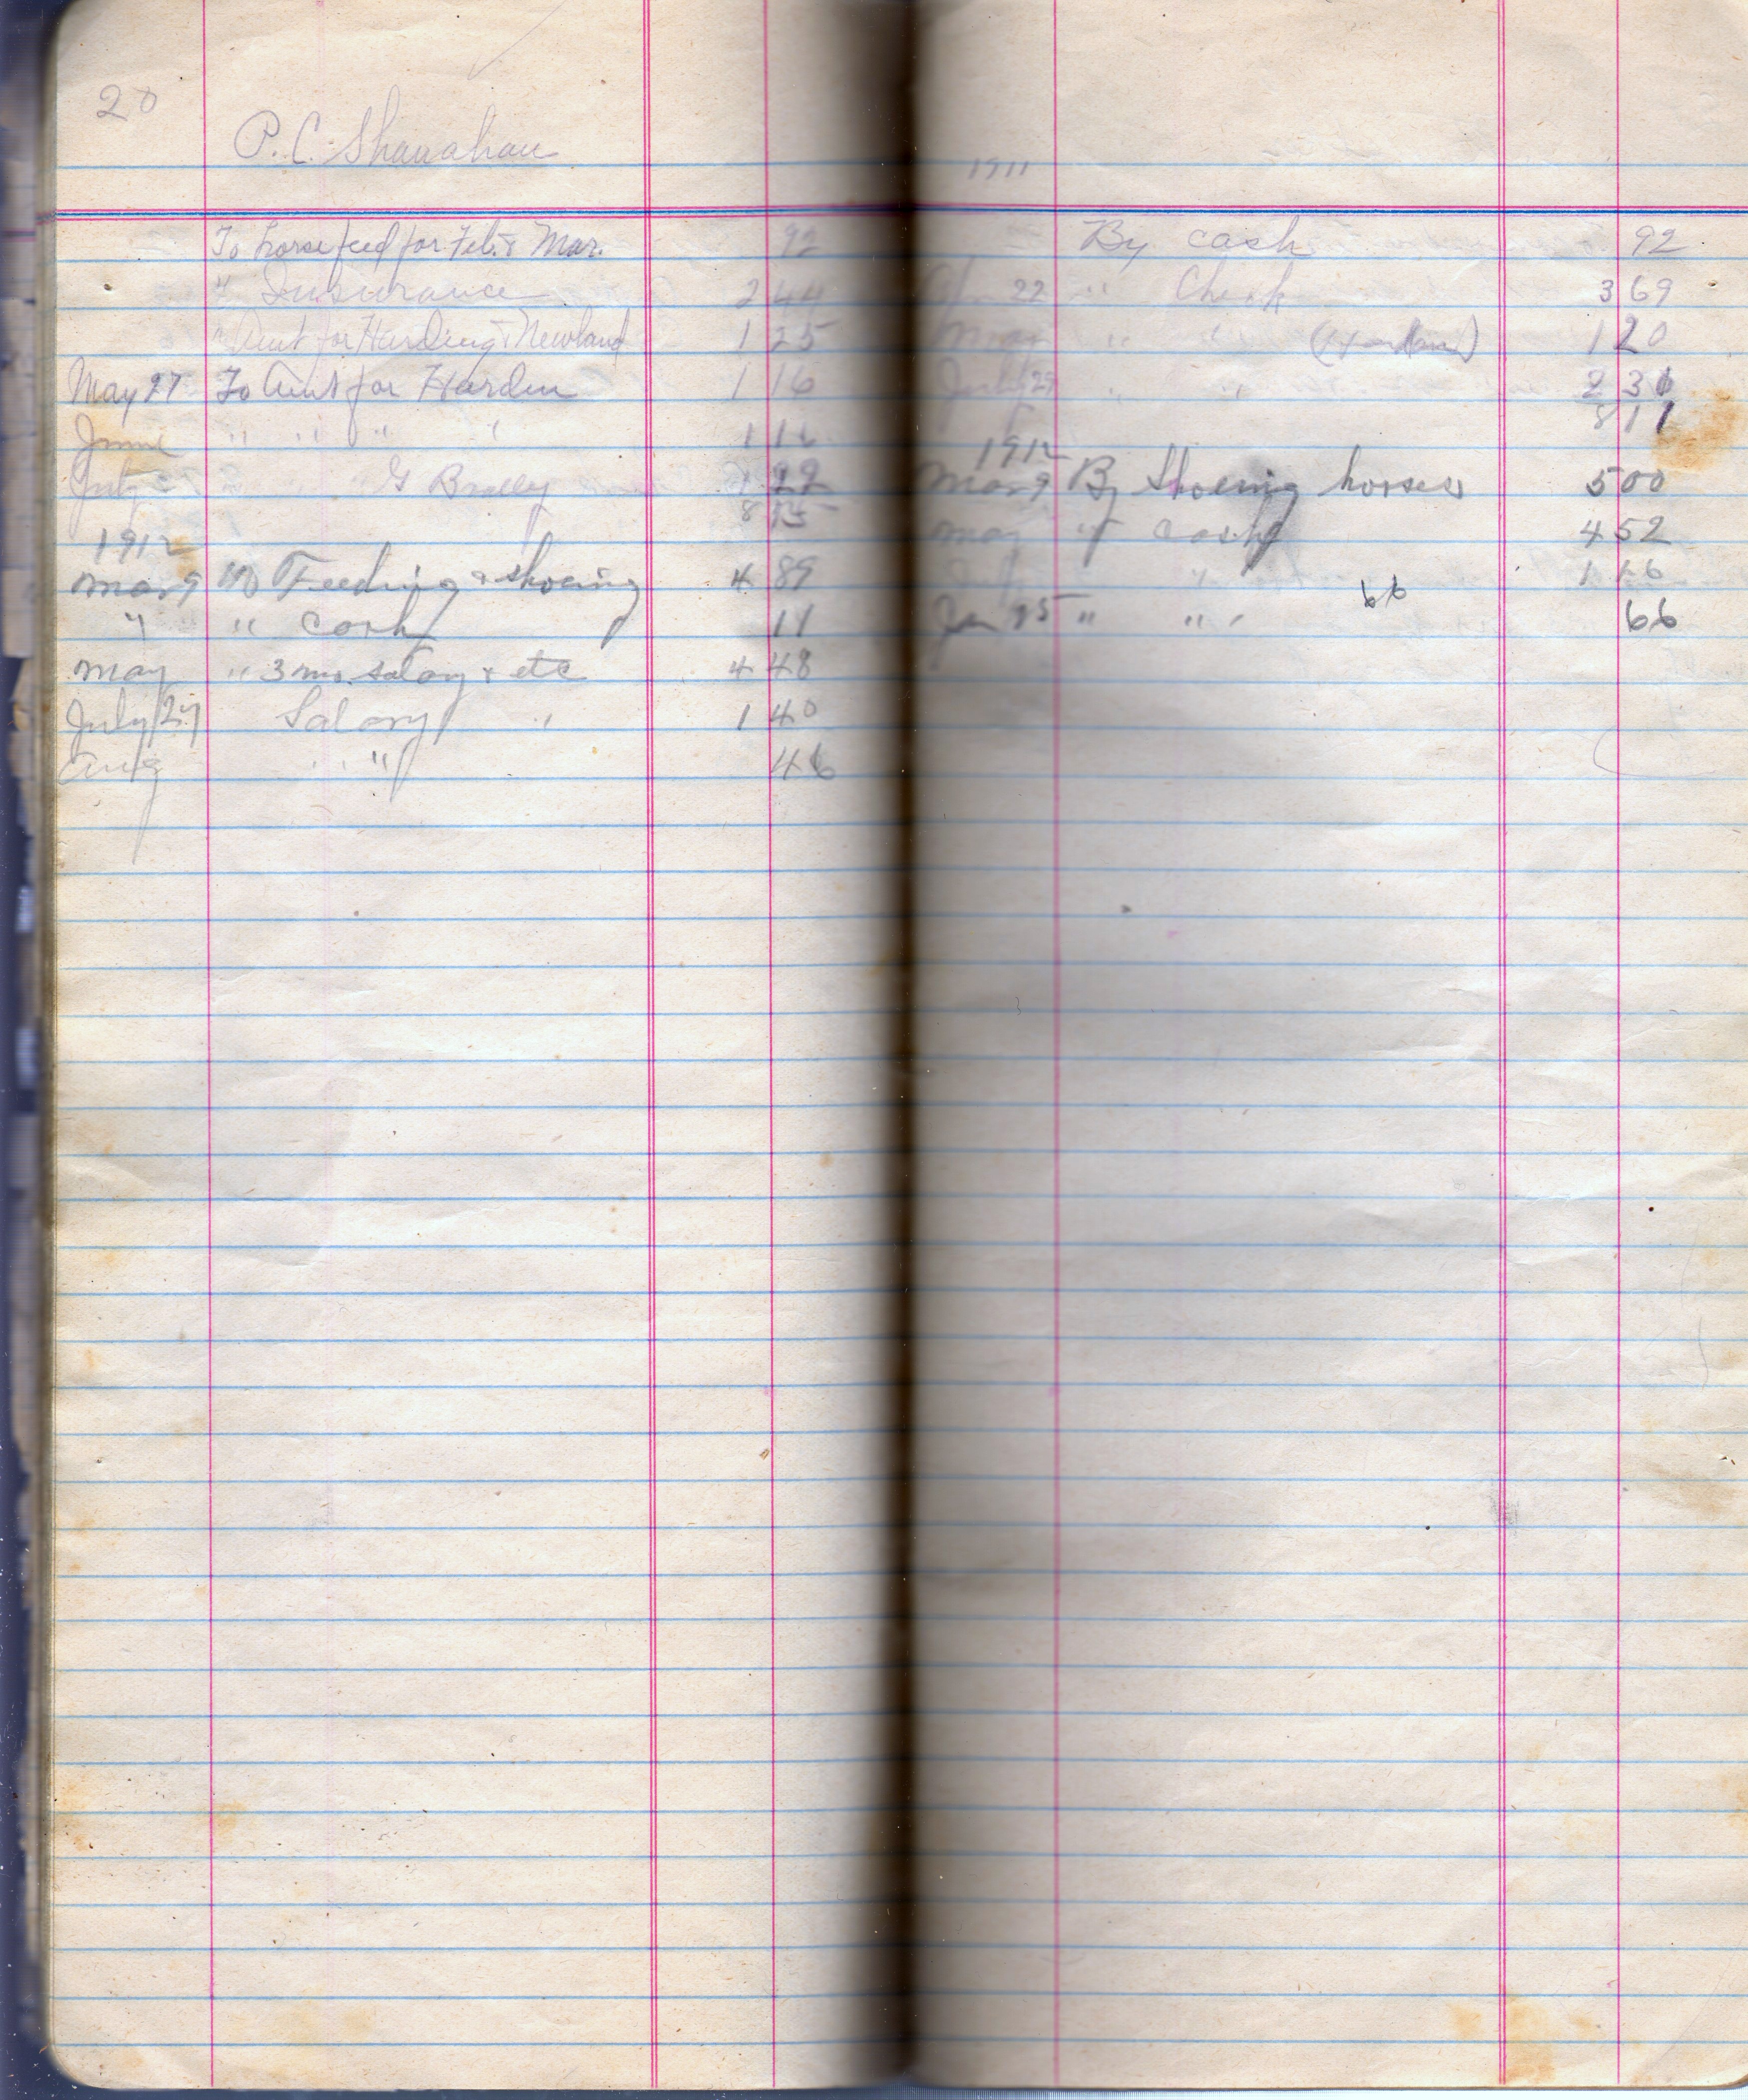 20
P. C. Shanahan
To horse feed for Feb. & Mar. 92
" Insurance 2 44
" Amt for Harding & Newland 1 25
May 27 To Amt for Harden 1 16
June " " " " 1 16
July " " G Bradley 1 22
8 15
1912
Mar 9 To Feeding & shoeing 4 89
" " Cash 11
May " 3 mo. salary & etc 4 48
July 27 Salary " 1 40
Aug " " 46
1911
By cash 92
22 " Check 3 69
May " " 1 20
July 29 " " 2 30
8 11
1912
Mar 9 By Shoeing horses 5 00
May " Cash 4 52
" 1 16
66
Jan 25 " " 66